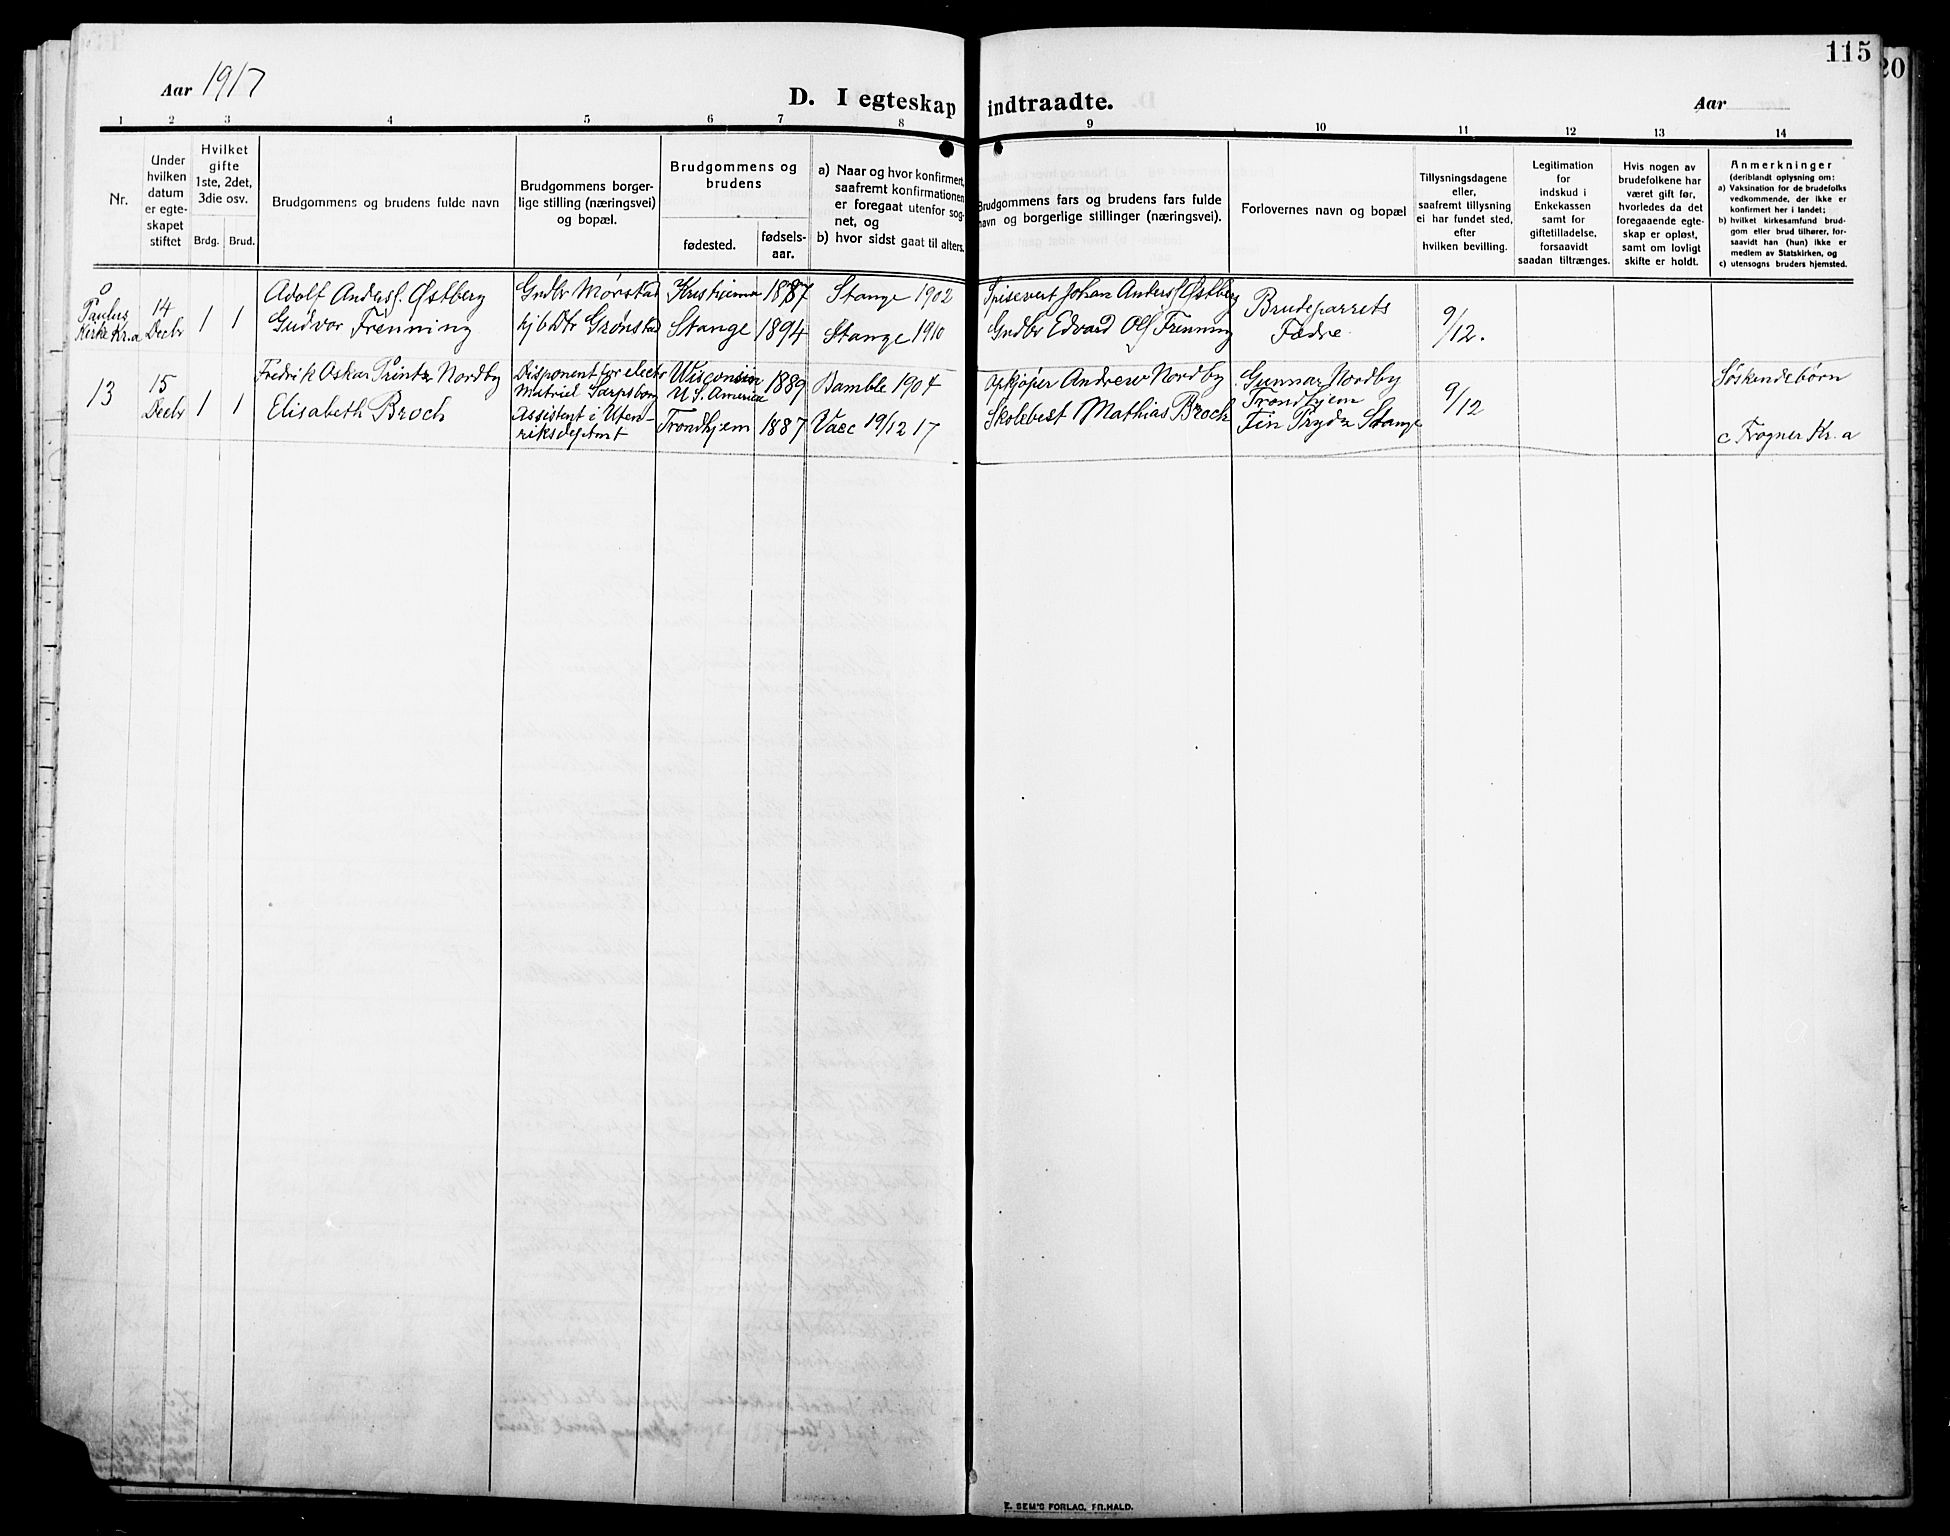 115
20
Aar 1917
D. I egteskap indtraadte.
Aar
1 2 3 4 5 6 7 8 9 10 11 12 13 14
Nr.
Under
hvilken
datum
er egte-
skapet
stiftet
Hvilket
gifte
1ste, 2det,
3die osv.
Brdg. Brud.
Brudgommens og brudens fulde navn
Brudgommens borger-
lige stilling (næringsvei)
og bopæl.
Brudgommens og
brudens
fødested.
fødsels-
aar.
a) Naar og hvor konfirmert,
saafremt konfirmationen
er foregaat utenfor sog-
net, og
b) hvor sidst gaat til alters.
Brudgommens fars og brudens fars fulde
navn og borgerlige stillinger (næringsvei).
Forlovernes navn og bopæl
Tillysningsdagene
eller,
saafremt tillysning
ei har fundet sted,
efter
hvilken bevilling.
Legitimation
for
indskud i
Enkekassen
samt for
giftetilladelse,
forsaavidt
saadan tiltrænges.
Hvis nogen av
brudefolkene har
været gift før,
hvorledes da det
foregaaende egte-
skap er opløst,
samt om lovligt
skifte er holdt.
Anmerkninger
(deriblandt oplysning om:
a) Vaksination for de brudefolks
vedkommende, der ikke er
konfirmert her i landet;
b) hvilket kirkesamfund brud-
gom eller brud tilhører, for-
saavidt han (hun) ikke er
medlem av Statskirken, og
c) utensogns bruders hjemsted.
Paulus
Kirke Kr.a
14
Decbr
1 1
Adolf Anderss. Østberg
Gudvor Frenning
Gndbr Mørstad
hjb Dtr Grønstad
Kristiania 1887
Stange 1894
Stange 1902
Stange 1910
Spisevert Johan Anderss Østberg
Gndbr Edvard Ols Frenning
Brudeparrets
Fædre
9/12.
13
15
Decbr
1 1
Fredrik Oskar Printz Nordby
Elisabeth Broch
Disponent for electr
Matriel Sarpsborg
Assistent i Uten-
riksdepamt
Wisconsin
U S. America
1889
Trondhjem 1887
Bamble 1904
Vaec 19/12 17
Opkjøper Andrew Nordby
Skolebest Mathias Broch
Gunnar Nordby
Trondhjem
Fin Prydz Stange
9/12
Søskendebørn
c Frogner Kr. a
E. SEM'S FORLAG, FR.HALD.